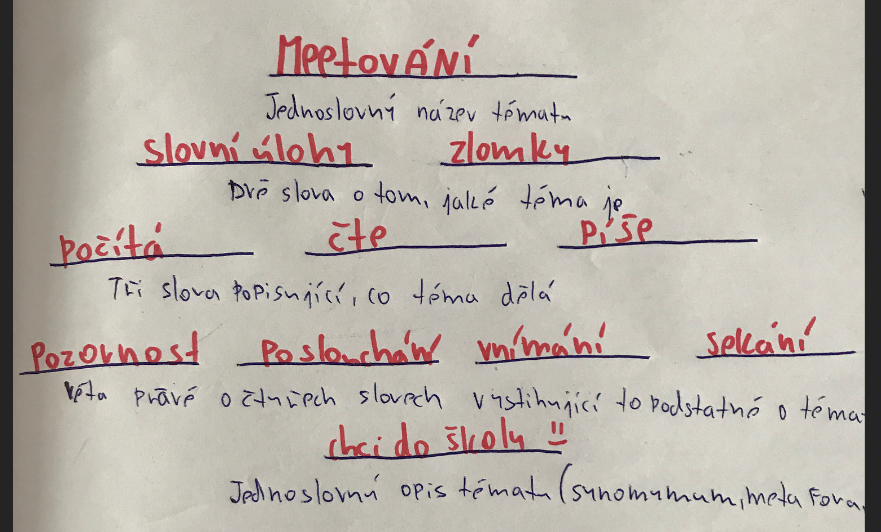 MeetovÁNÍ
Jednoslovný název tématu
slovní úlohy zlomky
Dvě slova o tom, jaké téma je
počítá čte píše
Tři slova popisující, co téma dělá
Pozornost Poslouchání vnímání sekání
Věta právě o čtyřech slovech vystihující to podstatné o téma
chci do školy !!
Jednoslovný opis tématu (synomymum, metafora,